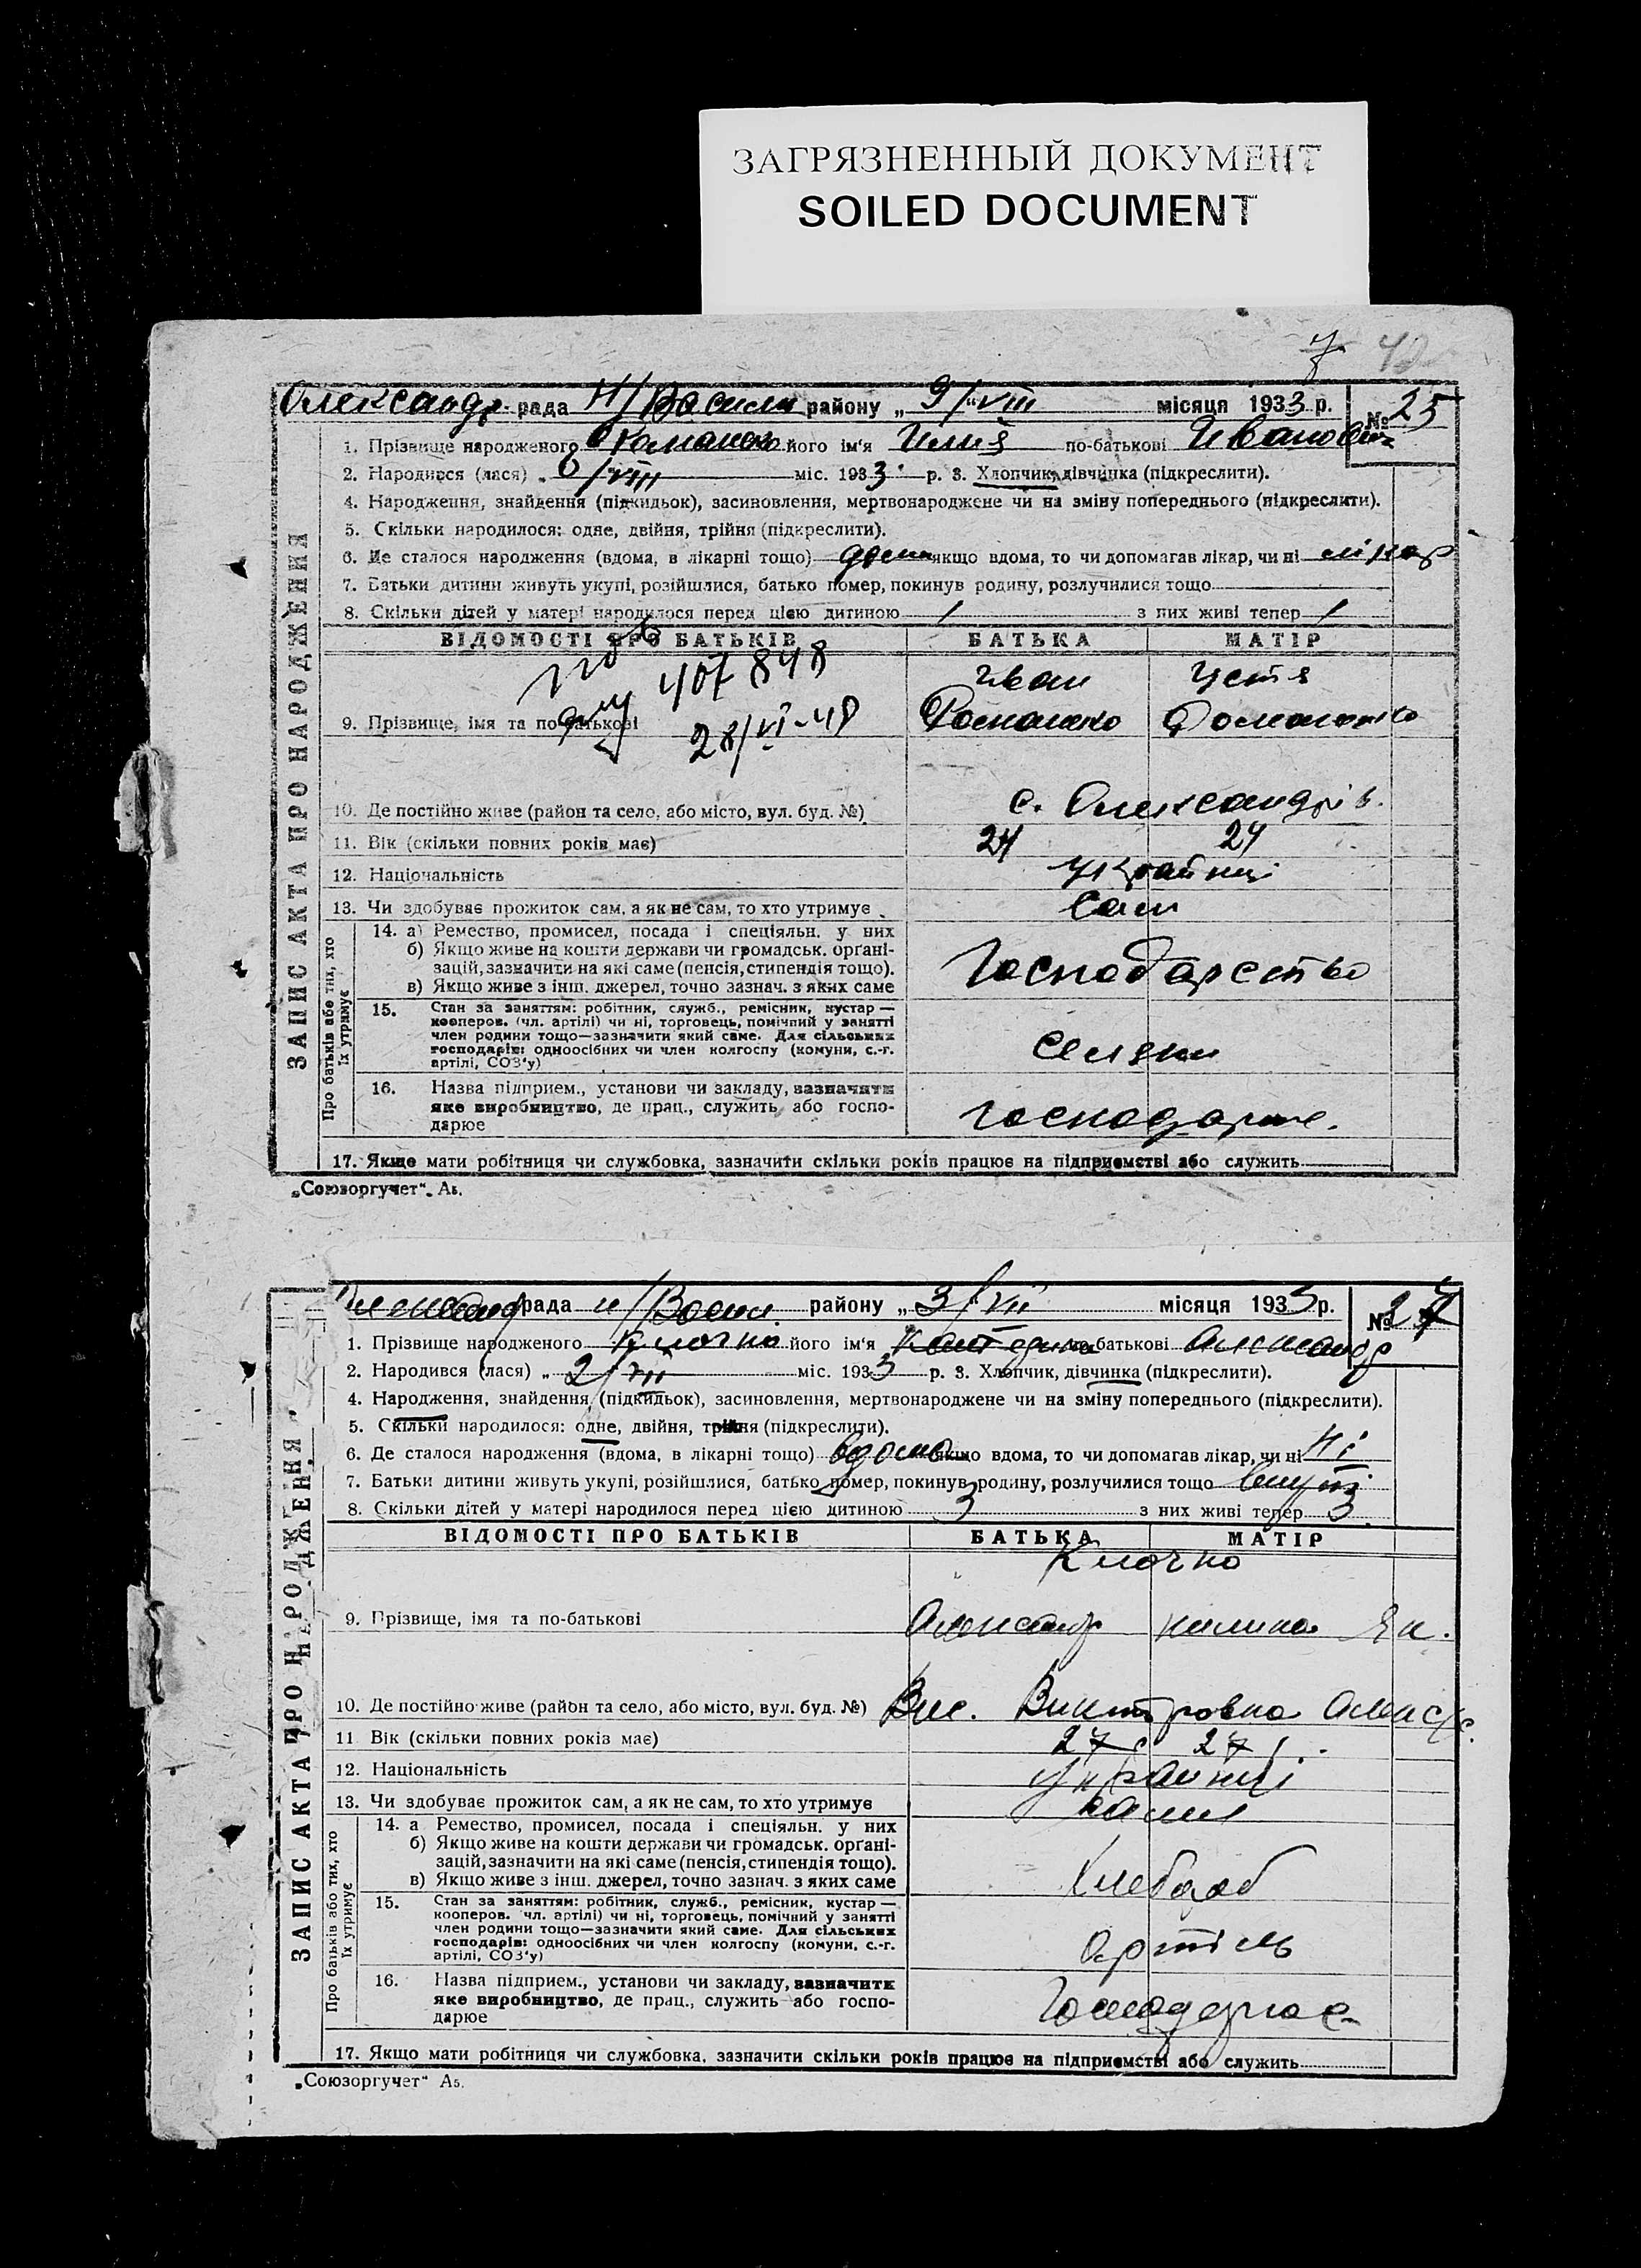 ЗАГРЯЗНЕННЫЙ ДОКУМЕНТ
SOILED DOCUMENT
7 42
Олександр. рада Н/Васили району „ 9/VIII “ місяця 1933 р. № 25
1. Прізвище народженого Романенко його ім'я Илия по-батькові Иванович
2. Народився (лася) „ 6/VIII міс. 1933 р. 3. Хлопчик, дівчинка (підкреслити).
4. Народження, знайдення (підкидьок), засиновлення, мертвонароджене чи на зміну попереднього (підкреслити).
5. Скільки народилося: одне, двійня, трійня (підкреслити).
6. Де сталося народження (вдома, в лікарні тощо) дома якщо вдома, то чи допомагав лікар, чи ні лікар
7. Батьки дитини живуть укупі, розійшлися, батько помер, покинув родину, розлучилися тощо
8. Скільки дітей у матері народилося перед цією дитиною 1 з них живі тепер 1
ВІДОМОСТІ ПРО БАТЬКІВ БАТЬКА МАТІР
407848
28/VI-48
Иван Устя
9. Прізвище, імя та по-батькові Романенко Романенко
10. Де постійно живе (район та село, або місто, вул. буд. №) с. Олександрів.
11. Вік (скільки повних років має) 24 24
12. Національність Українці
13. Чи здобуває прожиток сам, а як не сам, то хто утримує Сами
14. а) Ремество, промисел, посада і спеціяльн. у них
б) Якщо живе на кошти держави чи громадськ. орґані-
зацій, зазначити на які саме (пенсія, стипендія тощо).
в) Якщо живе з інш. джерел, точно зазнач. з яких саме
Господарство
15. Стан за заняттям: робітник, служб., ремісник, кустар —
кооперов. (чл. артілі) чи ні, торговець, помічний у занятті
член родини тощо—зазначити який саме. Для сільських
господарів: одноосібних чи член колгоспу (комуни, с.-г.
артілі, СОЗ'у)
Селяни
16. Назва підприєм., установи чи закладу, зазначити
яке виробництво, де прац., служить або госпо-
дарює
господарює.
17. Якщо мати робітниця чи службовка, зазначити скільки років працює на підприємстві або служить
ЗАПИС АКТА ПРО НАРОДЖЕННЯ
Про батьків або тих, хто
їх утримує
„Союзоргучет“. А5.
Олександ рада н/Васил. району „ 3/VII “ місяця 1933 р. № 27
1. Прізвище народженого Клочко його ім'я по-батькові Александр
2. Народився (лася) „ 2/VII міс. 1933 р. 3. Хлопчик, дівчинка (підкреслити).
4. Народження, знайдення (підкидьок), засиновлення, мертвонароджене чи на зміну попереднього (підкреслити).
5. Скільки народилося: одне, двійня, трійня (підкреслити).
6. Де сталося народження (вдома, в лікарні тощо) вдома якщо вдома, то чи допомагав лікар, чи ні Ні
7. Батьки дитини живуть укупі, розійшлися, батько помер, покинув родину, розлучилися тощо
8. Скільки дітей у матері народилося перед цією дитиною 3 з них живі тепер 3
ВІДОМОСТІ ПРО БАТЬКІВ БАТЬКА МАТІР
Клочко
9. Прізвище, імя та по-батькові Александр килина Як.
10. Де постійно живе (район та село, або місто, вул. буд. №) Вис. Викторовка
11 Вік (скільки повних років має) 27 27
12. Національність Українці
13. Чи здобуває прожиток сам, а як не сам, то хто утримує сами
14. а Ремество, промисел, посада і спеціяльн. у них
б) Якщо живе на кошти держави чи громадськ. орґані-
зацій, зазначити на які саме (пенсія, стипендія тощо).
в) Якщо живе з інш. джерел, точно зазнач. з яких саме
Хлебороб
15. Стан за заняттям: робітник, служб., ремісник, кустар —
кооперов. чл. артілі) чи ні, торговець, помічний у занятті
член родини тощо—зазначити який саме. Для сільських
господарів: одноосібних чи член колгоспу (комуни, с.-г.
артілі, СОЗ'у)
Артіль
16. Назва підприєм., установи чи закладу, зазначити
яке виробництво, де прац., служить або госпо-
дарює
Господарює
17. Якщо мати робітниця чи службовка, зазначити скільки років працює на підприємстві або служить
ЗАПИС АКТА ПРО НАРОДЖЕННЯ
Про батьків або тих, хто
їх утримує
„Союзоргучет“ А5.